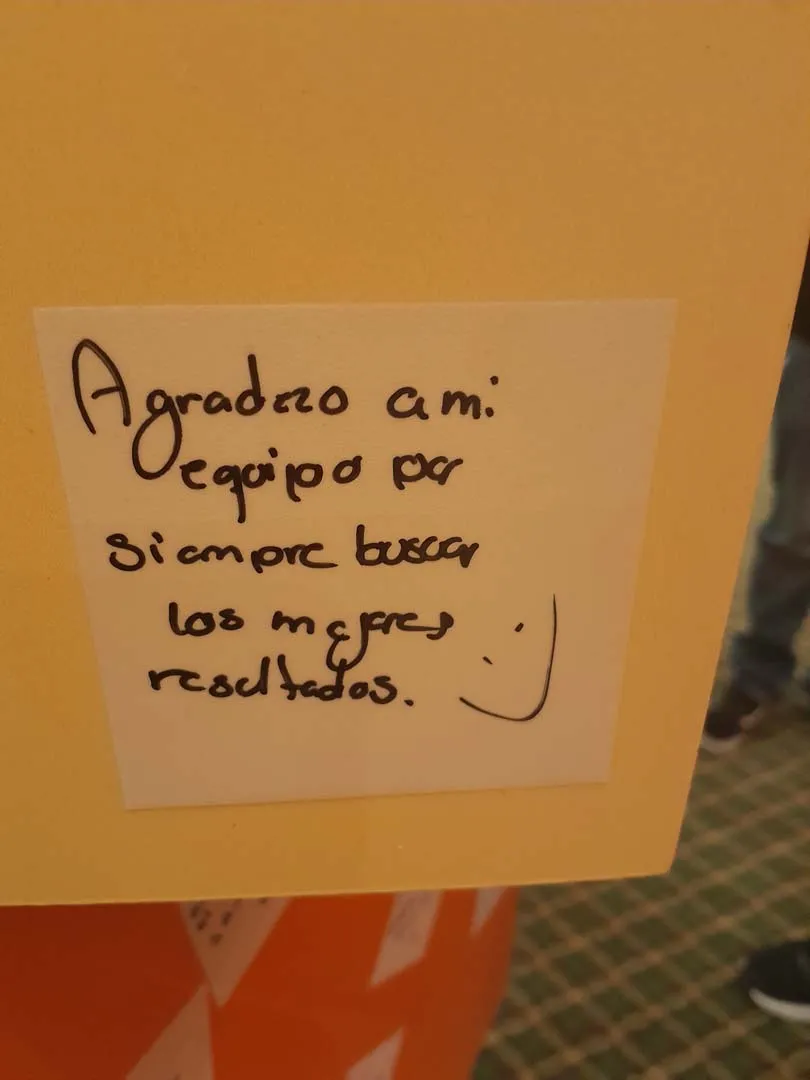 Agradezco a mi
equipo por
siempre buscar
los mejores
resultados. :)